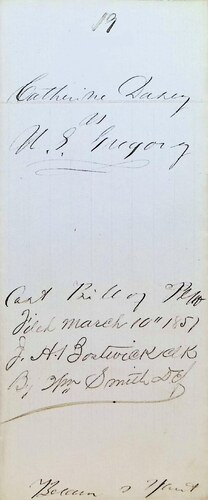 19
Catherine Dancy
vs
N. S. Gregory
Cost Bill of Plff
Filed March 10th 1857
J. A. Bostwick Clk
By Wm Smith DC